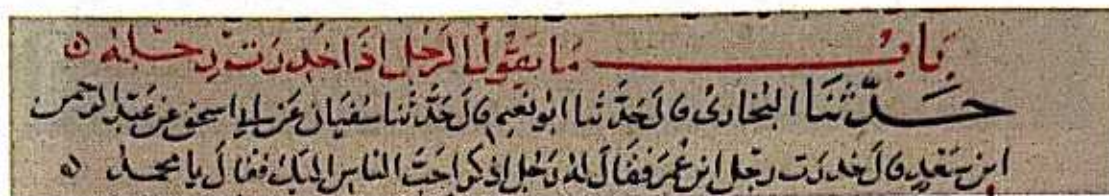 بَابُ مَا يَقُولُ الرَّجُلُ اِذَا خَدِرَتْ رِجْلُهُ ۵
حَدَّثَنَا البُخَارِىُّ قَالَ حَدَّثَنَا ابُو نُعَيْمٍ قَالَ حَدَّثَنَا سُفْيَانُ عَنْ اَبِى اسحٰق عَنْ عَبْدِ الرَّحْمٰن
ابنِ سَعْدٍ قَالَ خَدِرَتْ رِجْلُ ابنِ عُمَرَ فَقَالَ لَهُ رَجُلٌ اذْكُر اَحَبَّ النَّاسِ اِلَيْكَ فَقَالَ يا محمدُ ۵